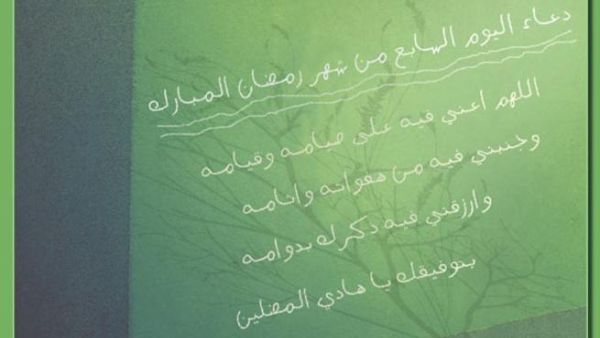 دعاء اليوم السابع من شهر رمضان المبارك
اللهم اعني فيه على صيامه وقيامه
وجنبني فيه من هفواته واثامه
وارزقني فيه ذكرك بدوامه
بتوفيقك يا هادي المضلين